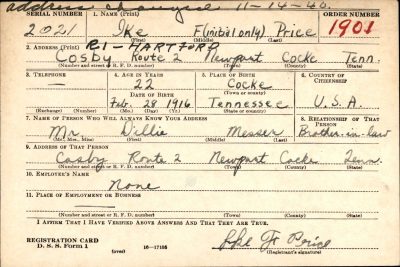 address changed 11-14-40.
SERIAL NUMBER 1. NAME (Print) ORDER NUMBER
2021 Ike F(initial only) Price 1901
(First) (Middle) (Last)
2. ADDRESS (Print) R1-HARTFORD
Cosby Route 2 Newport Cocke Tenn.
(Number and street or R. F. D. number) (Town) (County) (State)
3. TELEPHONE 4. AGE IN YEARS 5. PLACE OF BIRTH 6. COUNTRY OF CITIZENSHIP
— 22 Cocke
(Town or county)
DATE OF BIRTH
Feb. 28 1916 Tennessee U.S.A.
(Exchange) (Number) (Mo.) (Day) (Yr.) (State or country)
7. NAME OF PERSON WHO WILL ALWAYS KNOW YOUR ADDRESS 8. RELATIONSHIP OF THAT PERSON
Mr. Willie Messer Brother-in-law
(Mr., Mrs., Miss) (First) (Middle) (Last)
9. ADDRESS OF THAT PERSON
Cosby Route 2 Newport Cocke Tenn.
(Number and street or R. F. D. number) (Town) (County) (State)
10. EMPLOYER'S NAME
None
11. PLACE OF EMPLOYMENT OR BUSINESS
—
(Number and street or R. F. D. number) (Town) (County) (State)
I AFFIRM THAT I HAVE VERIFIED ABOVE ANSWERS AND THAT THEY ARE TRUE.
REGISTRATION CARD
D. S. S. Form 1 (over) 16—17105 Ike F. Price
(Registrant's signature)